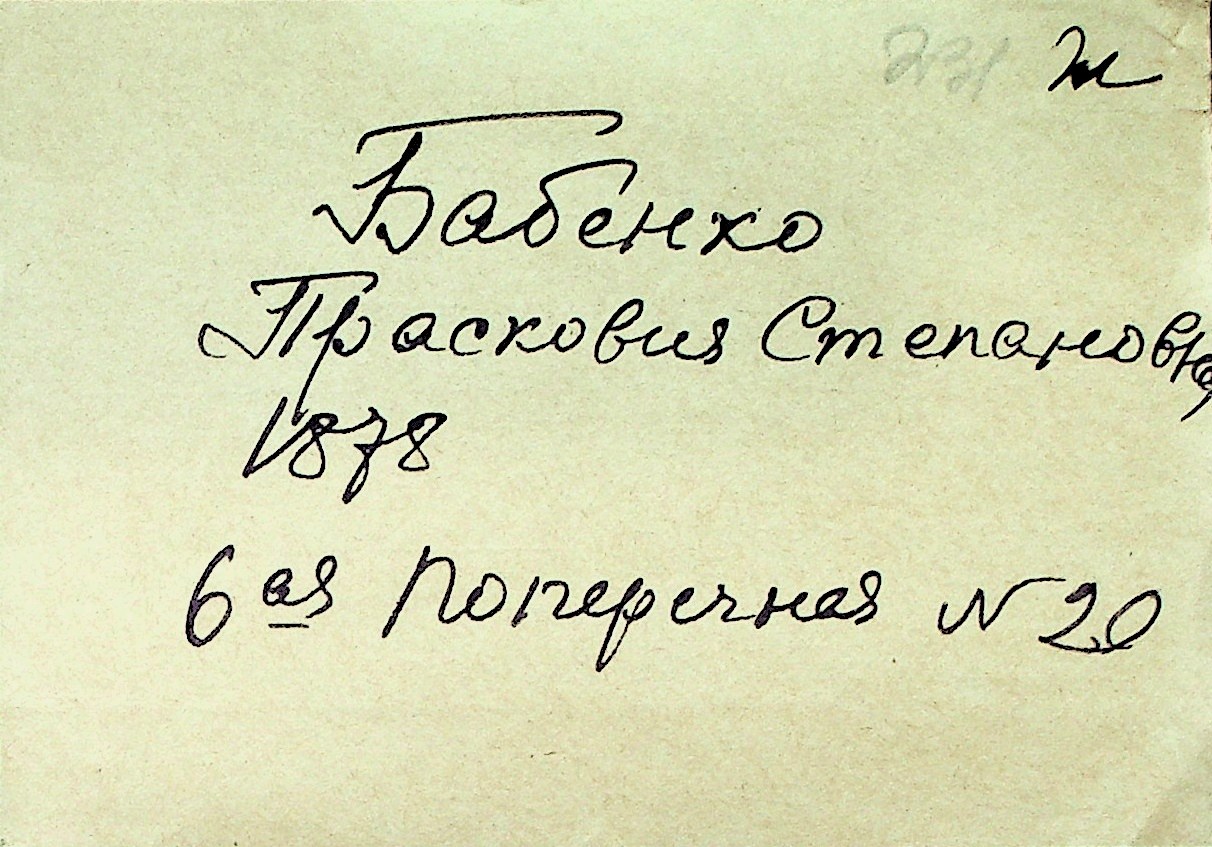 231 ж
Бабенко
Прасковия Степановна
1878
6ая Поперечная N 20